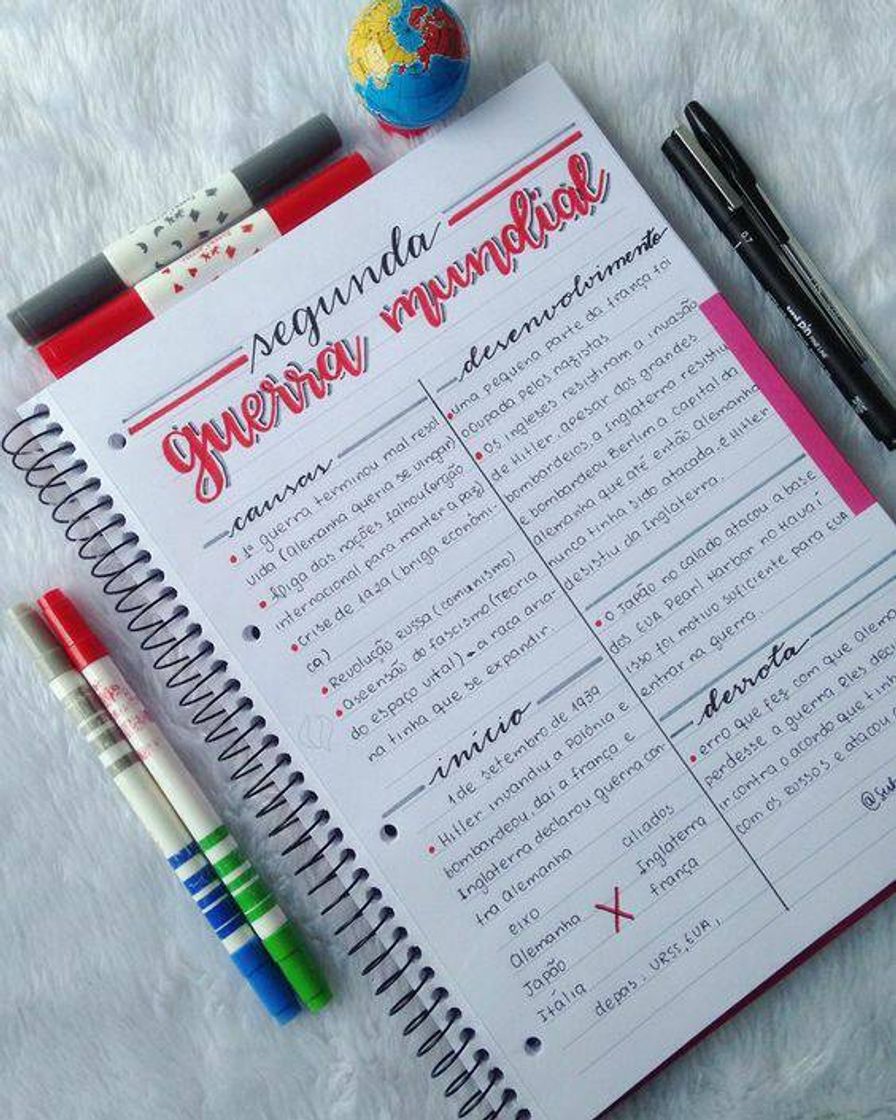 segunda
guerra mundial
causas
• 1ª guerra terminou mal resol
vida (Alemanha queria se vingar)
• Aliga das nações falhou (orgão
internacional para manter a paz)
• Crise de 1929 (briga econômi-
ca)
• Revolução Russa (comunismo)
• Ascensão do fascismo (Teoria
do espaço vital) → a raça aria-
na tinha que se expandir.
início
1 de setembro de 1939
• Hitler invandiu a Polônia e
bombardeou, daí a frança e
Inglaterra declarou guerra con-
tra Alemanha
eixo
aliados
Alemanha X Inglaterra
Japão
frança
Itália
depas. URSS, EUA,
desenvolvimento
uma pequena parte da frança foi
ocupada pelos nazistas
• Os ingleses resistiram a invasão
de Hitler, apesar dos grandes
bombardeios, a Inglaterra resistiu
e bombardeou Berlim a capital da
Alemanha que até então Alemanha
nunca tinha sido atacada, e Hitler
desistiu da Inglaterra.
• O Japão no calado atacou a base
dos EUA Pearl Harbor no Havaí
isso foi motivo suficiente para EUA
entrar na guerra.
derrota
• erro que fez com que Alem
perdesse a guerra Eles deci
ir contra o acordo que tin
com os Russos e atacou
0.7
uni pin FINE LINE